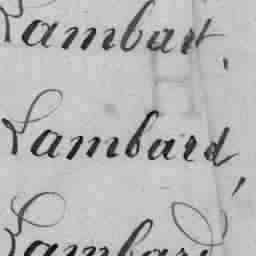 Lambart,
Lambard,
Lambard